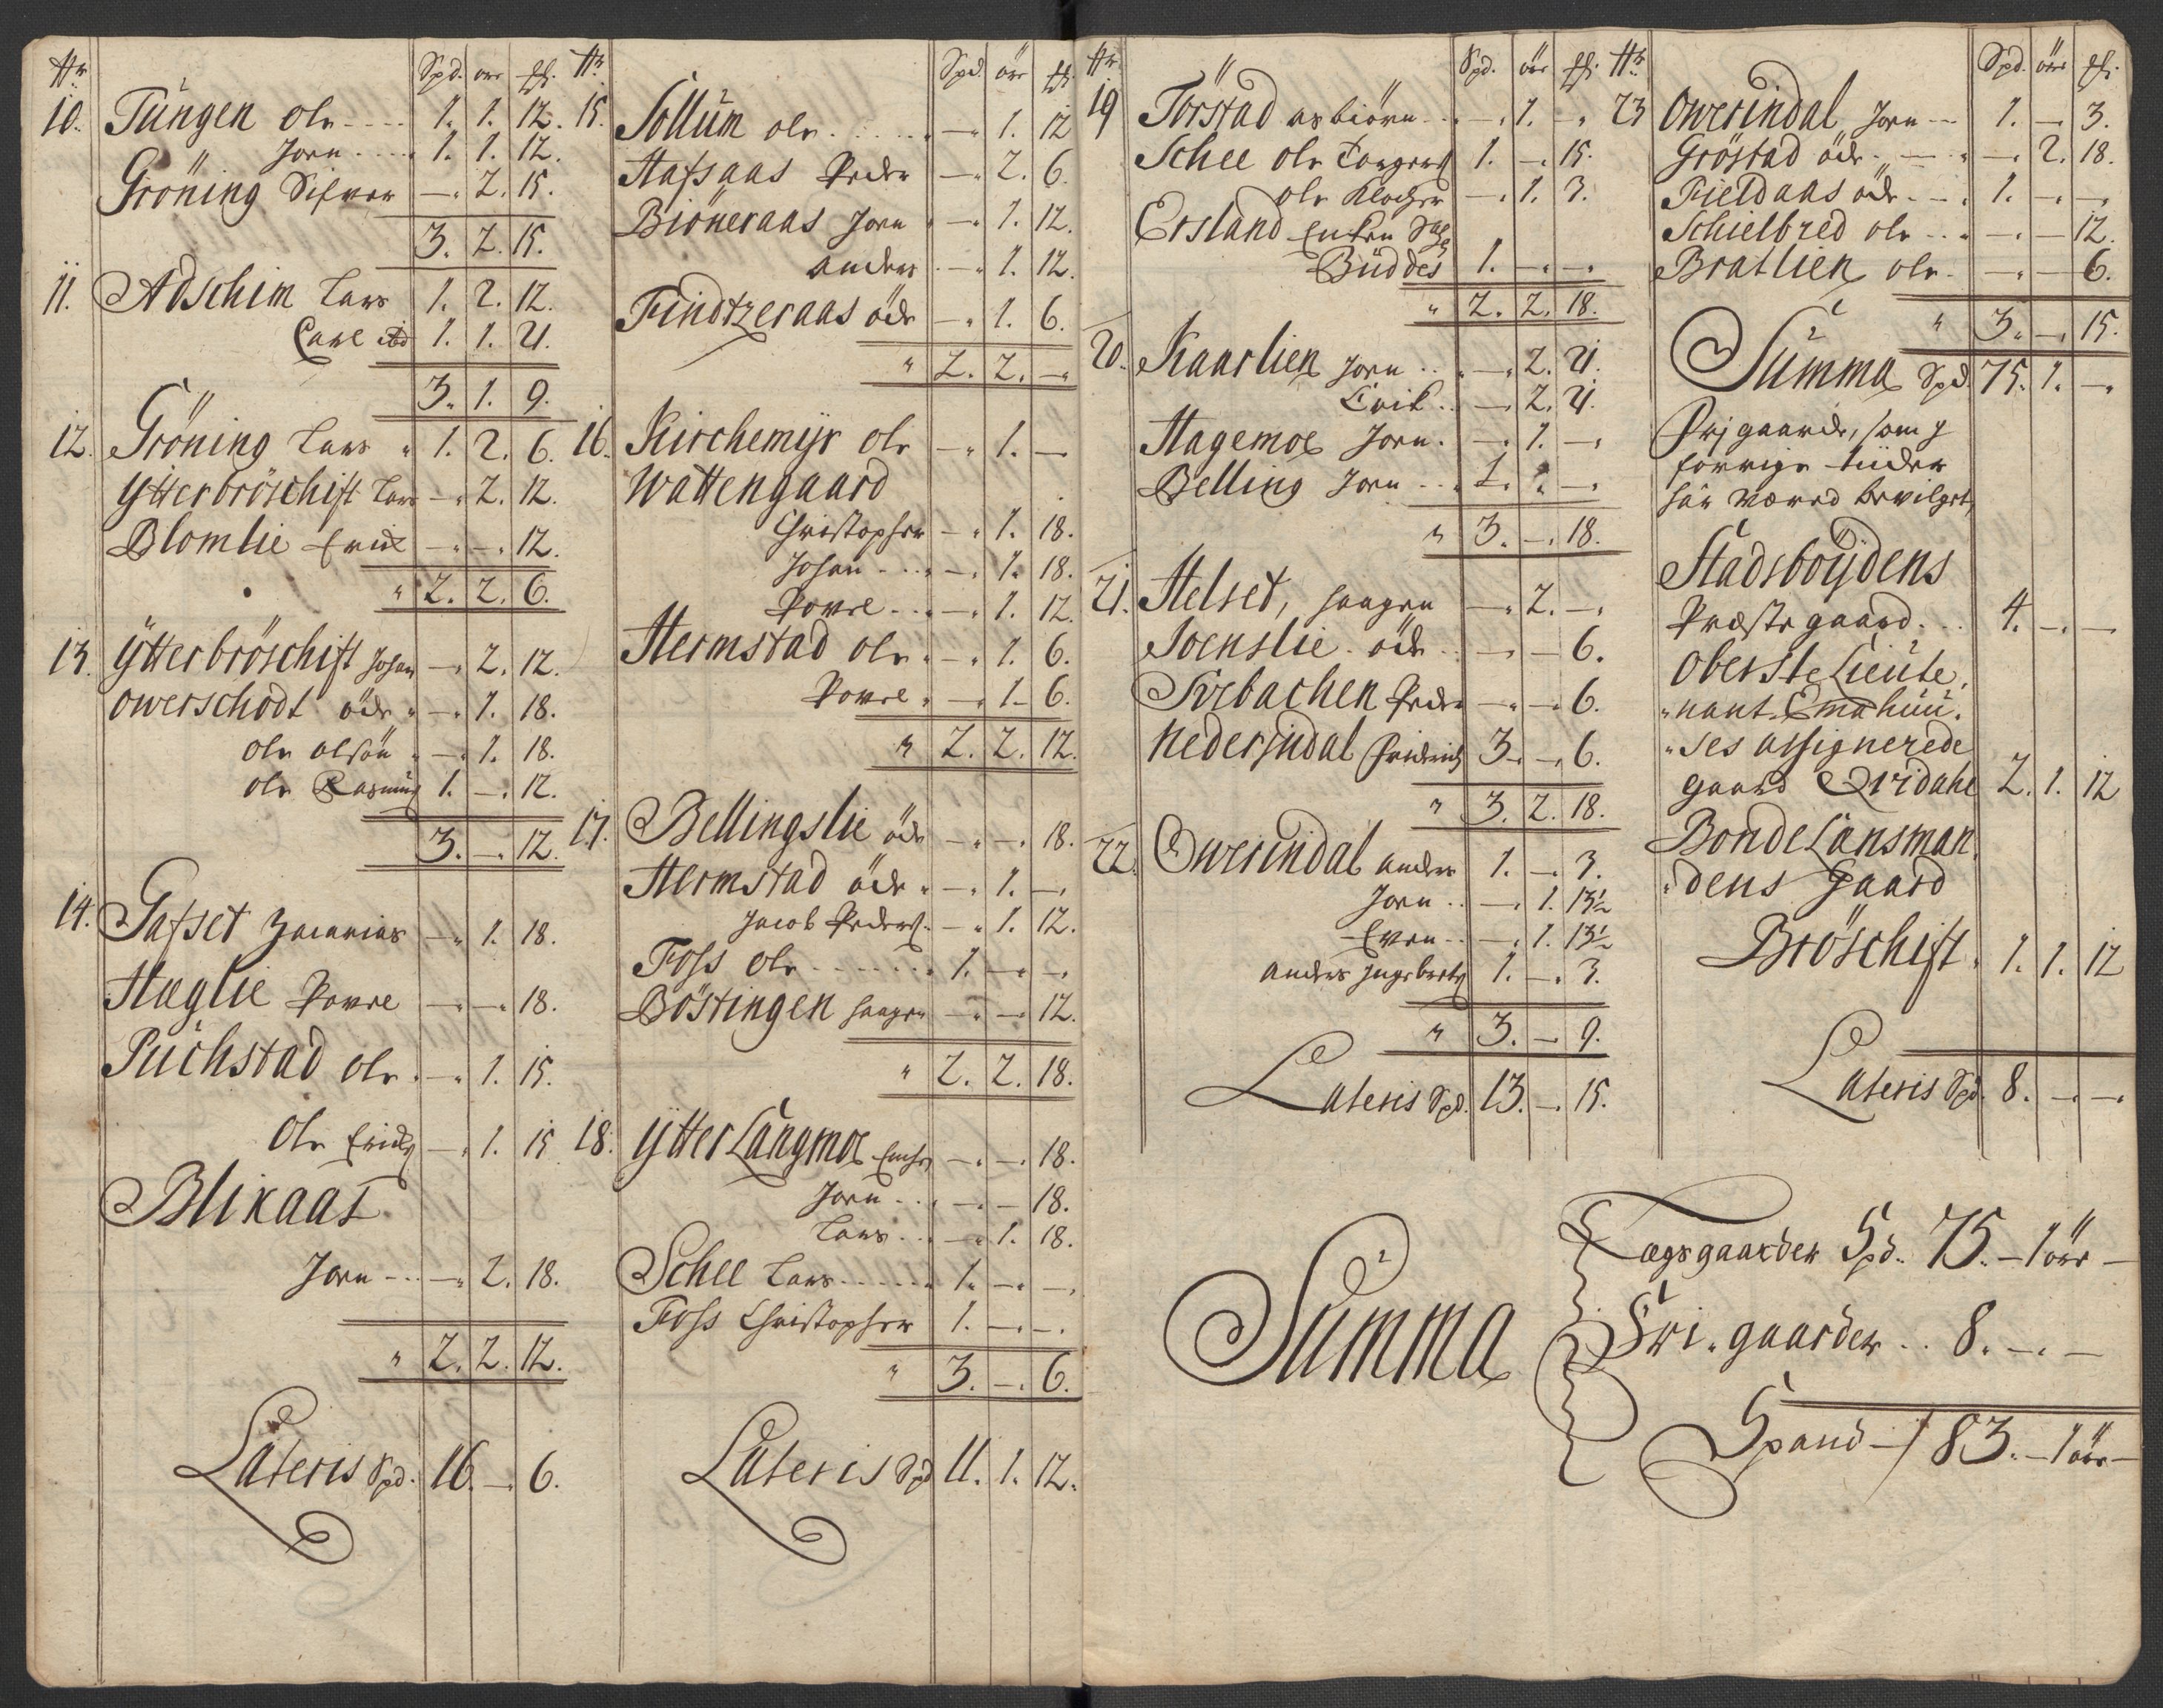 Nr Spd. ör ß.
10. Tüngen ole - - - 1. 1. 12.
Joen - - - 1. 1. 12.
Gröning Sifver —. 2. 15.
3. 2. 15.
11. Adschim Lars 1. 2. 12.
Carl 1. 1. 21.
3. 1. 9.
12. Gröning Lars 1. 2. 6.
Ytterbröschift Lars —. 2. 12.
Blomlie Erich —. —. 12.
" 2. 2. 6.
13. Ytterbröschift Johan —. 2. 12.
Owerschodt öde —. 1. 18.
ole olsön —. 1. 18.
ole Rasmus 1. —. 12.
3. —. 12.
14. Gafset Zacarias —. 1. 18.
Hæglie Povel —. —. 18.
Püchstad ole —. 1. 15.
Ole Erichs —. 1. 15
Blikaas
Joen - - —. 2. 18.
" 2. 2. 12.
Lateris Spd. 16. —. 6.
Nr Spd. ör ß.
15. Sollüm ole . . . —. 1. 12
Hafsaas Peder —. 2. 6.
Biöneraas Joen —. 1. 12.
anders —. 1. 12.
Findtzeraas öde —. 1. 6.
" 2. 2. —.
16. Kirchemyr ole —. 1. —
Wattengaard
Christopher —. 1. 18.
Johan - - —. 1. 18.
Povel - - —. 1. 12.
Hermstad ole —. 1. 6.
Povel —. 1. 6.
" 2. 2. 12.
17. Bellingslie öde —. —. 18.
Hermstad öde —. 1. —.
Jacob Peders. —. 1. 12.
Foss ole - - - - 1. —. —.
Böstingen haagen —. —. 12.
" 2. 2. 18.
18. Ytter Langmoe —. —. 18.
Joen - - —. — 18.
Lars . . —. 1. 18.
Schee Lars - - - - 1. —. —.
Foss Christopher 1. —. —.
" 3. —. 6.
Lateris Spd 11. 1. 12.
Nr Spd. ör ß.
19 Törstad asbiörn . . —. 1. —.
Schee ole Torgers 1. —. 15.
ole Klocher —. 1. 3.
Ersland Enken Sal
Büddes 1. —. —.
" 2. 2. 18.
20. Kaarlien Joen . . —. 2. 21.
Erik . . —. 2. 21.
Hagemoe Joen . —. 1. —.
Belling Joen - - 1. —.
" 3. —. 18.
21. Helset, haagen —. 2. —.
Joenslie öde — — 6.
Sirbachen Peder —. —. 6.
Nederindal Fridrich 3. —. 6.
" 3. 2. 18.
22. Owerindal anders 1. —. 3.
Joen . . —. 1. 13½
Even - - —. 1. 13½
anders Ingebrets 1. —. 3.
" 3. — 9.
Lateris Spd. 13. —. 15.
Nr Spd. ör ß.
23 Owerindal Joen - - 1. —. 3.
Gröstad öde - —. 2. 18.
Fieldaas öde - - 1. —. —.
Schielbred ole - - —. — 12.
Bratlien ole - —. — 6.
" 3. —. 15.
Summa Spd. 75. 1. —.
Frj gaarde, som j
forrige tiider
har wæred bevilget,
Stadsboÿdens
Præste gaard . . 4. —. —
Oberste Lieüte,
"nant Emahüü.
"ses assignerede
gaard Qvidahl 2. 1. 12
Bonde Länsman.
"dens gaard
Bröschift. 1. 1. 12
Lateris Spd. 8. —. —.
Summa
Lægsgaarder Spd. 75. — 1 ör —
Fri. gaarder . . 8. —. —
Spand — 83. — 1 ör —